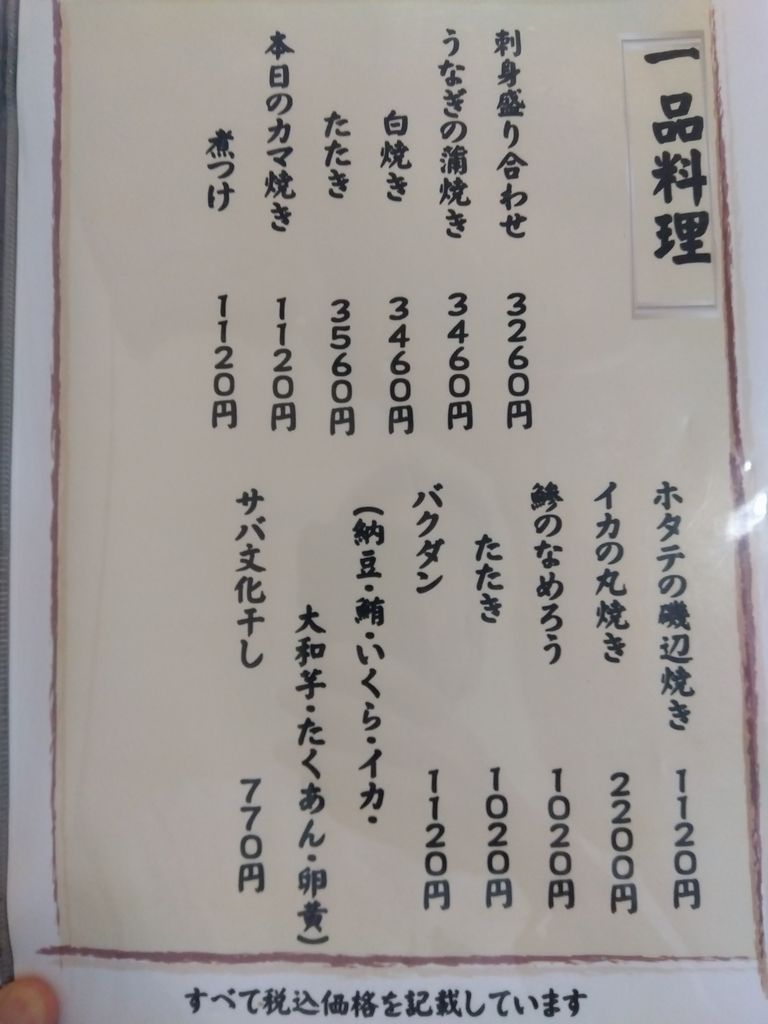 一品料理
刺身盛り合わせ 3260円
うなぎの蒲焼き 3460円
白焼き 3460円
たたき 3560円
本日のカマ焼き 1120円
煮つけ 1120円
ホタテの磯辺焼き 1120円
イカの丸焼き 2200円
鯵のなめろう 1020円
たたき 1020円
バクダン 1120円
(納豆・鮪・いくら・イカ・
大和芋・たくあん・卵黄)
サバ文化干し 770円
すべて税込価格を記載しています